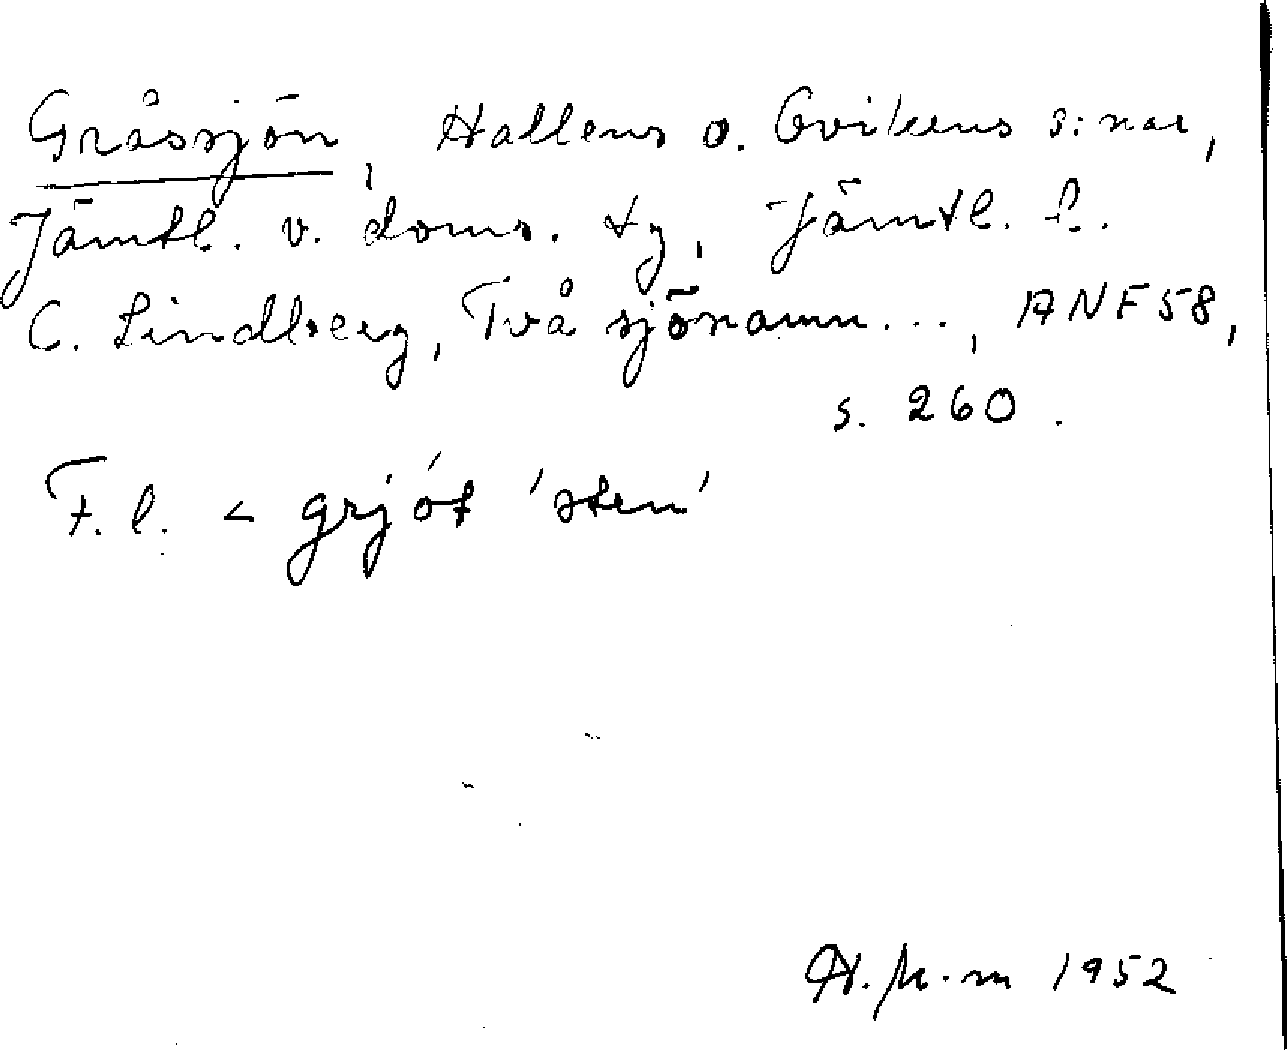 Gråssjön, Hallens o. Ovikens s:nar,
Jämtl. v. doms. tg, Jämtl. l.
C. Lindberg, Två sjönamn..., ANF 58,
s. 260.
F. l. < grjót 'sten'
1952